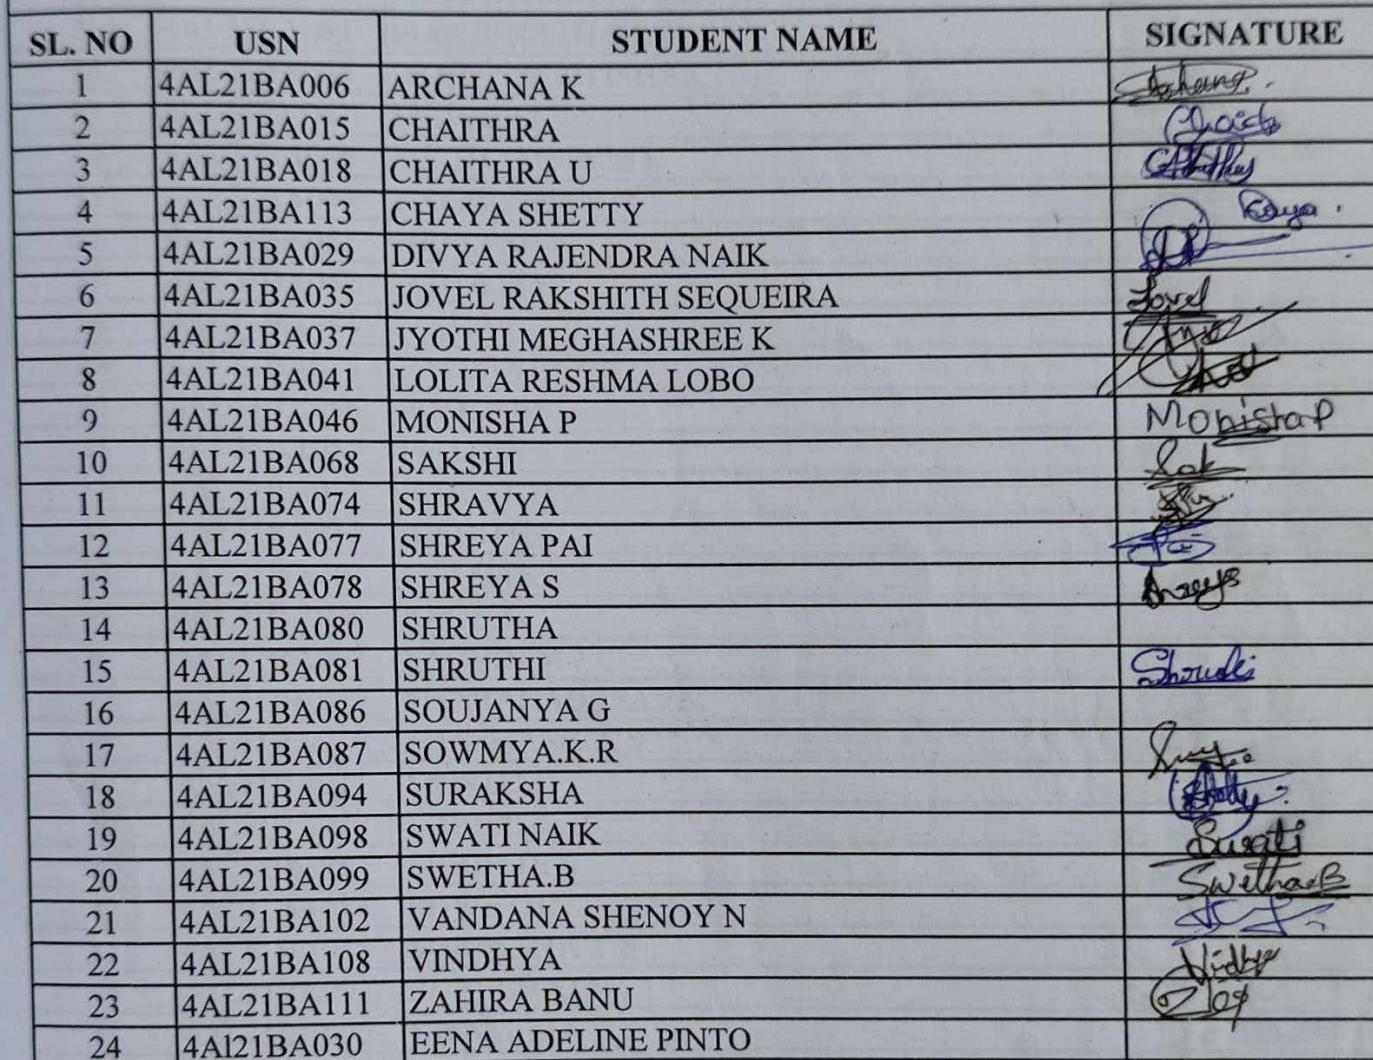 SL. NO USN STUDENT NAME SIGNATURE
1 4AL21BA006 ARCHANA K
2 4AL21BA015 CHAITHRA
3 4AL21BA018 CHAITHRA U
4 4AL21BA113 CHAYA SHETTY
5 4AL21BA029 DIVYA RAJENDRA NAIK
6 4AL21BA035 JOVEL RAKSHITH SEQUEIRA Jovel
7 4AL21BA037 JYOTHI MEGHASHREE K
8 4AL21BA041 LOLITA RESHMA LOBO
9 4AL21BA046 MONISHA P Monisha P
10 4AL21BA068 SAKSHI Sak
11 4AL21BA074 SHRAVYA
12 4AL21BA077 SHREYA PAI
13 4AL21BA078 SHREYA S
14 4AL21BA080 SHRUTHA
15 4AL21BA081 SHRUTHI
16 4AL21BA086 SOUJANYA G
17 4AL21BA087 SOWMYA.K.R
18 4AL21BA094 SURAKSHA
19 4AL21BA098 SWATI NAIK Swati
20 4AL21BA099 SWETHA.B Swetha.B
21 4AL21BA102 VANDANA SHENOY N
22 4AL21BA108 VINDHYA
23 4AL21BA111 ZAHIRA BANU
24 4Al21BA030 EENA ADELINE PINTO